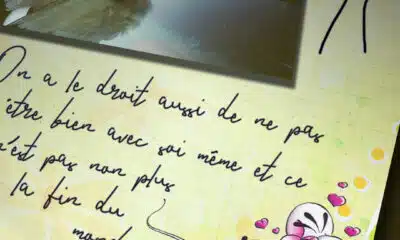 On a le droit aussi de ne pas
être bien avec soi même et ce
n'est pas non plus
la fin du